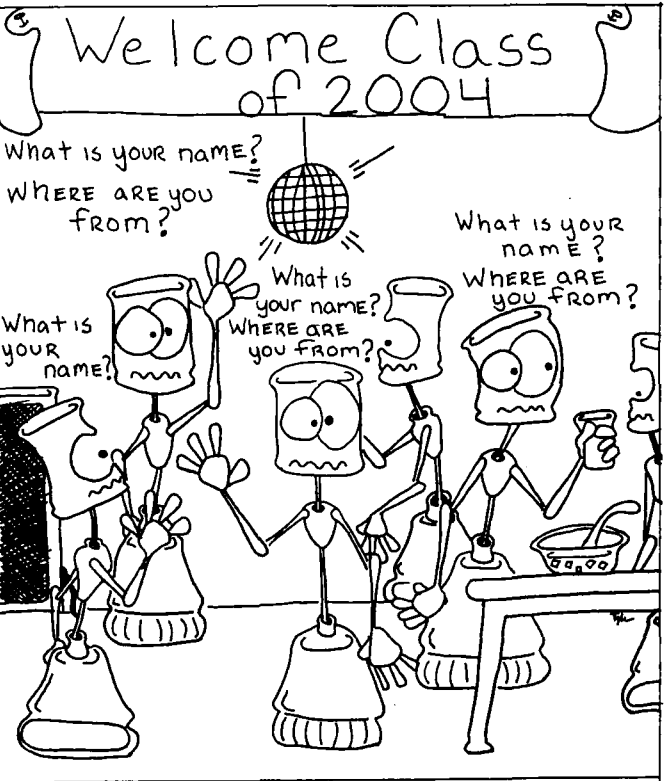 Welcome Class
of 2004
What is your name?
Where are you
from?
What is your
name?
Where are
you from?
What is
your name?
Where are
you from?
What is
your
name?